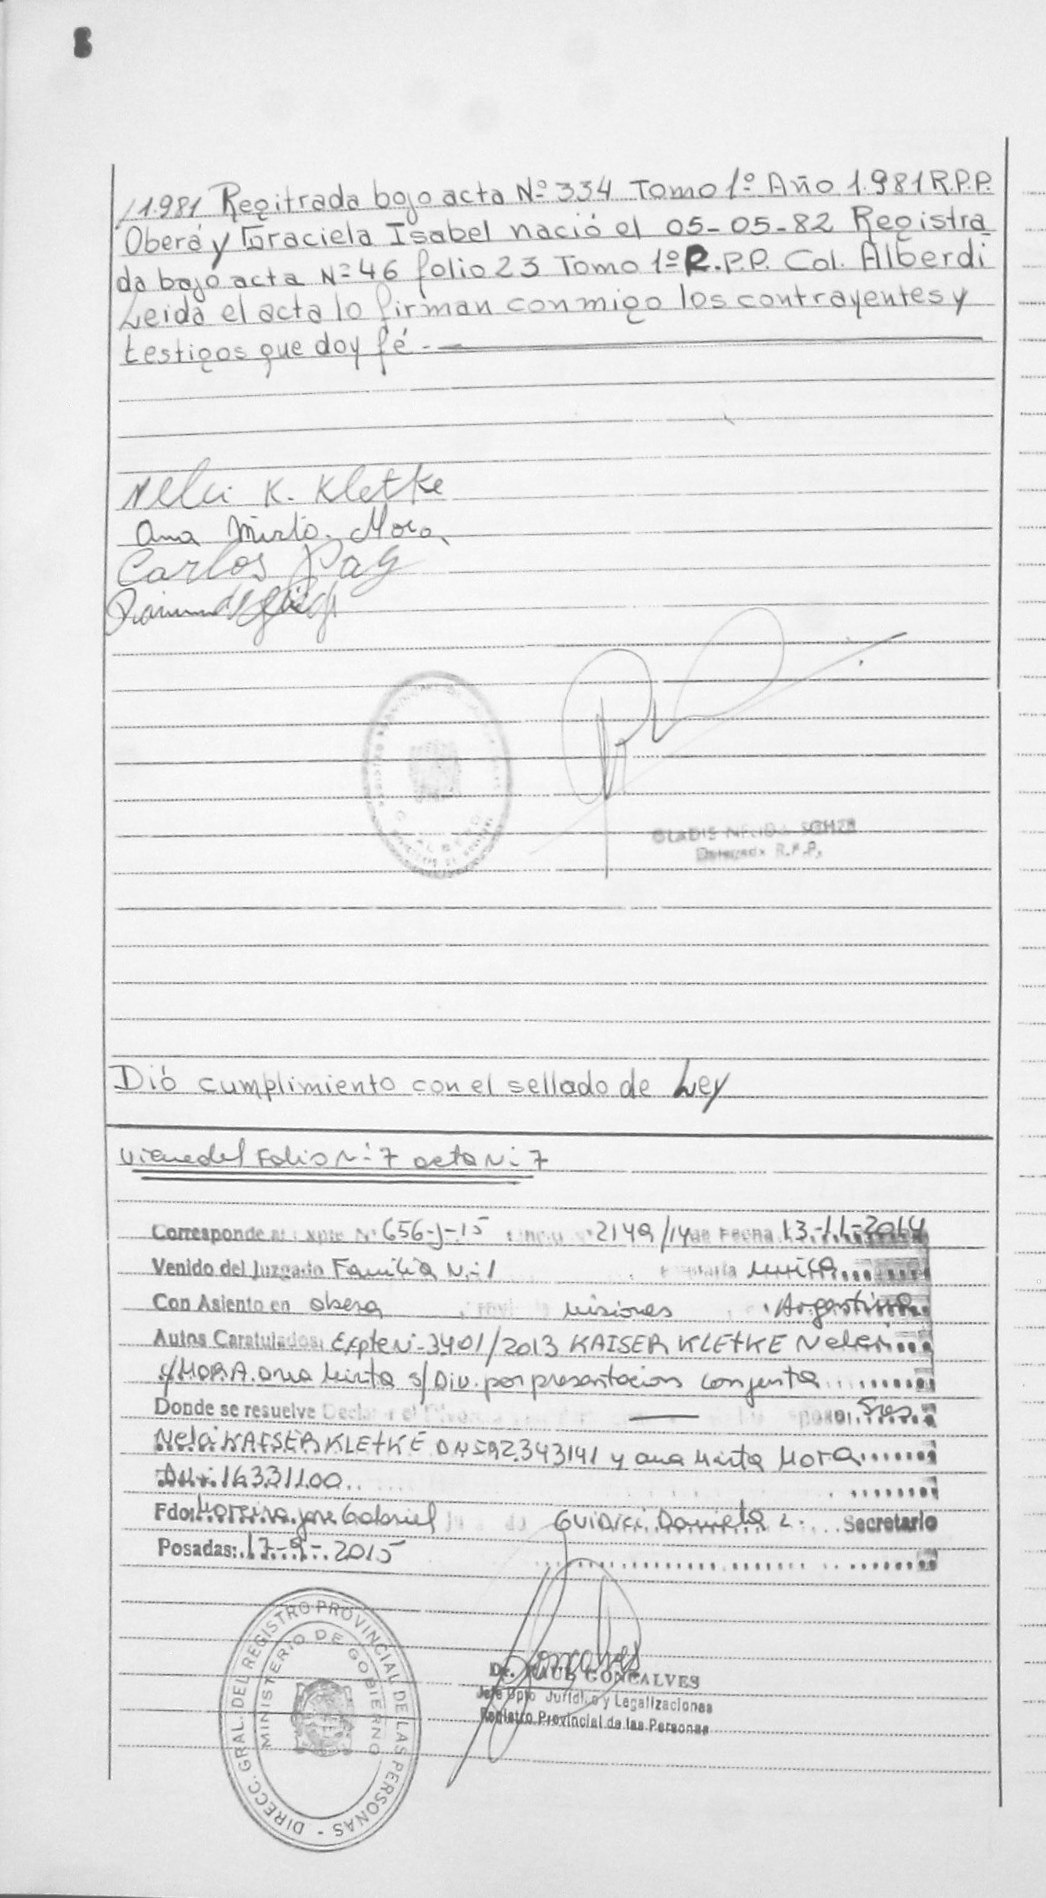 8
/1.981 Regitrada bajo acta Nº 334 Tomo 1º Año 1.981 R.P.P.
Oberá y Graciela Isabel nació el 05-05-82 Registra
da bajo acta Nº 46 folio 23 Tomo 1º R.P.P. Col. Alberdi
Leida el acta lo firman conmigo los contrayentes y
testigos que doy fé.-
Nelci K. Kletke
Ana Mirta Mora
Carlos Pag
GLADIS NELIDA
R.P.P.
Dió cumplimiento con el sellado de Ley
Viene del Folio N: 7 acta N: 7
Corresponde al Expte Nº 656-J-15 2149/14 de Fecha 13-11-2014
Venido del Juzgado Familia N: 1 Secretaría única
Con Asiento en obera Misiones Argentina
Autos Caratulados: Expte N: 3401/2013 KAISER KLETKE Nelci
y MORA ana Mirta s/ Div. por presentacion conjunta
Donde se resuelve Declarar el Divorcio esposos: Sres.
Nelci KAISER KLETKE DNI 92.343141 y ana Mirta Mora
DNI: 16331100
Fdo: Moreira, jose Gabriel Juez de GUIDICI Daniela L. Secretario
Posadas: 17-9-2015
Dr. RAUL GONCALVES
Jefe Dpto Juridico y Legalizaciones
Registro Provincial de las Personas
DIRECC. GRAL. DEL REGISTRO PROVINCIAL DE LAS PERSONAS -
MINISTERIO DE GOBIERNO